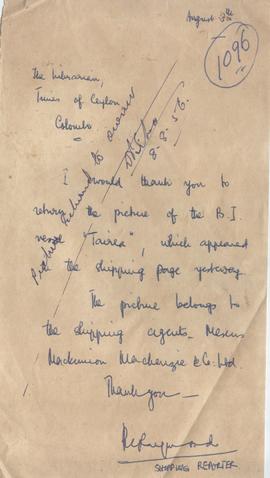 August 8th
1096
The Librarian,
Times of Ceylon
Colombo
Picture returned to owner
8.8.56.
I would thank you to
return the picture of the B.I.
vessel "Tairea", which appeared
in the shipping page yesterday.
The picture belongs to
the shipping agents, Messrs
Mackinnon Mackenzie & Co. Ltd.
Thank you —
SHIPPING REPORTER